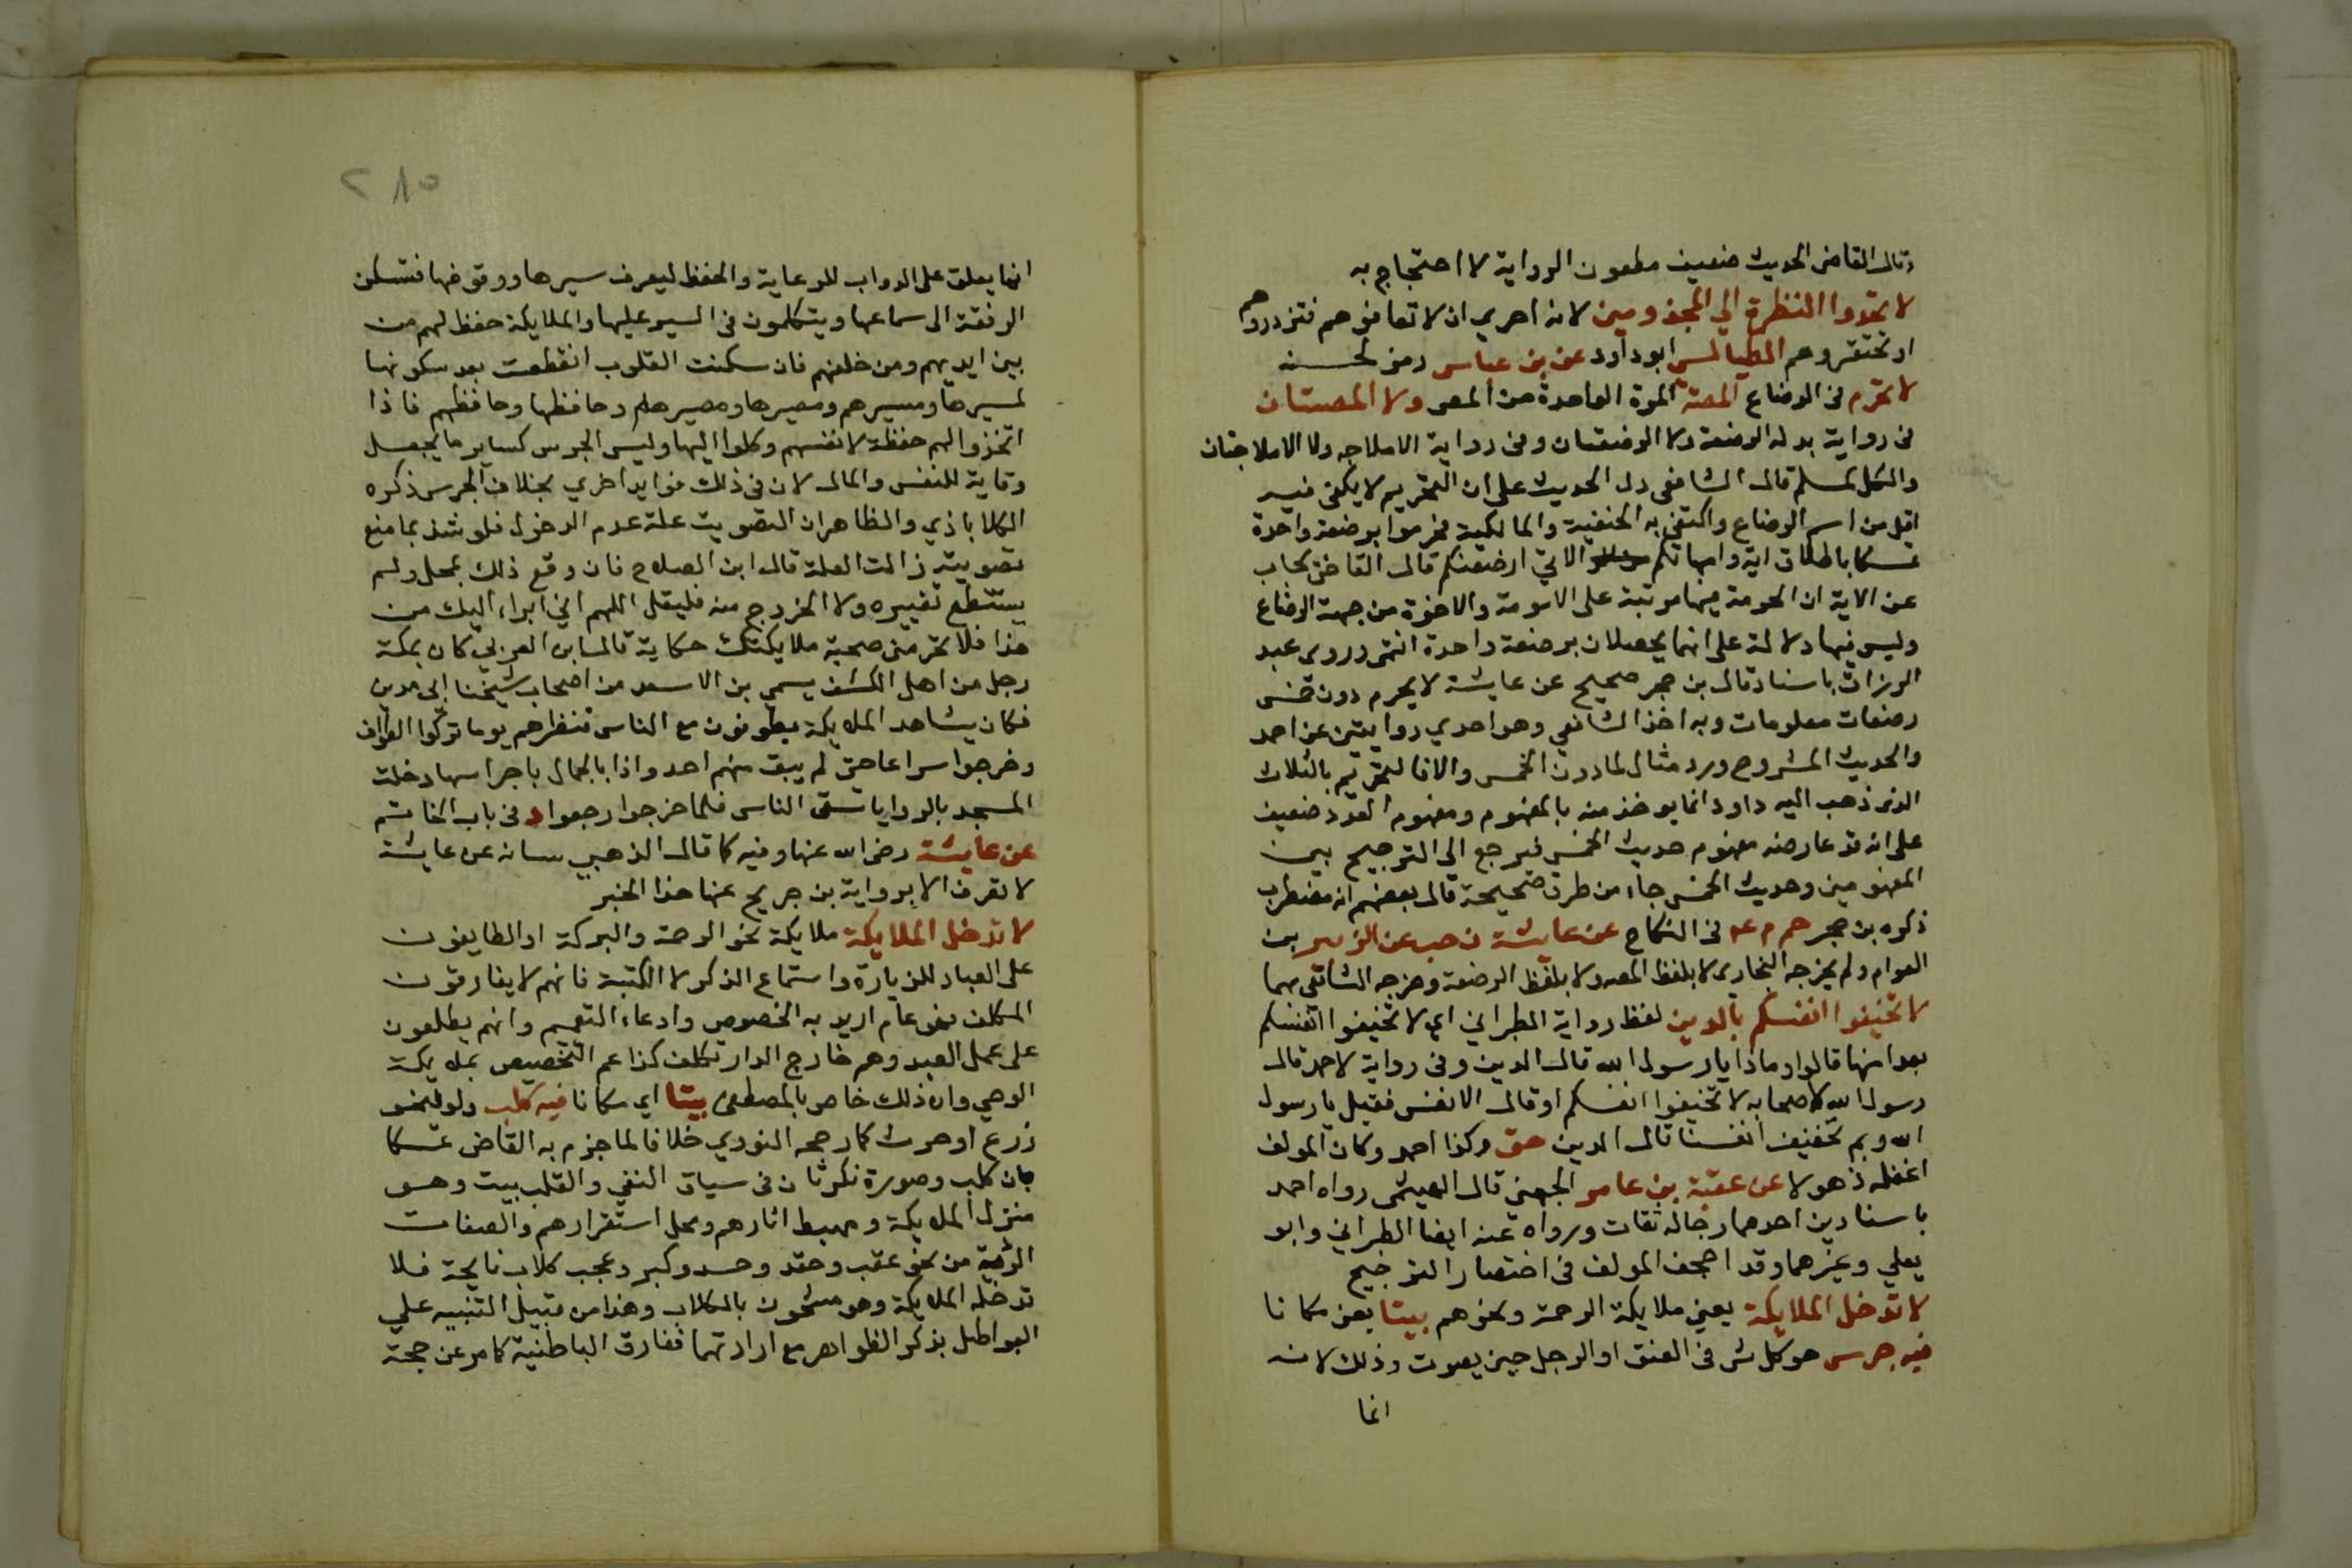 وقال القاضى الحديث ضعيف مطعون الرواية لا احتجاج به
لا تحدوا النظرة الي المجذومين لانه احري ان لا تعافوهم فتزدروهم
او تحتقروهم الطيالسى ابو داود عن بن عباس رمز لحسنه
لا تحرم فى الرضاع المصة المرة الواحدة من المص ولا المصتان
فى رواية بدله الرضعة ولا الرضعتان وفى رواية الاملاجه ولا الاملاجتان
والكل لمسلم قال الشافعى دل الحديث على ان التحريم لا يكفى فيه
اقل من اسم الرضاع واكتفى به الحنفية والمالكية فحرموا برضعة واحدة
تمسكا باطلاق اية وامهاتكم الاتي ارضعنكم قال القاضى يجاب
عن الاية ان الحرمة فيها مرتبة على الامومة والاخوة من جهة الرضاع
وليس فيها دلالة على انهما يحصلان برضعة واحدة انتهى وروى عبد
الرزاق باسناد قال بن حجر صحيح عن عايشة لا يحرم دون خمس
رضعات معلومات وبه اخذ الشافعي وهو احدي روايتين عن احمد
والحديث المشروح ورد مثالا لما دون الخمس والا فالتحريم بالثلاث
الذى ذهب اليه داود انما يوخذ منه بالمفهوم ومفهوم العدد ضعيف
على انه قد عارضه مفهوم حديث الخمس فيرجع الي الترجيح بين
المفهومين وحديث الخمس جاء من طرق صحيحة قال بعضهم انه مضطرب
ذكره بن حجر حم م عه فى النكاح عن عايشة ن حب عن الزبير بن
العوام ولم يخرجه البخارى لا بلفظ المصه ولا بلفظ الرضعة وخرجه الشافعى بهما
لا تخيفوا انفسكم بالدين لفظ رواية الطبراني اي لا تخيفوا انفسكم
بعد امنها قالوا وماذا يا رسول الله قال الدين وفى رواية لاحمد قال
رسول الله لاصحابه لا تخيفوا انفسكم او قال الانفس فقيل يا رسول
الله وبم تخيف انفسنا قال الدين هق وكذا احمد وكان المولف
اغفله ذهولا عن عقبة بن عامر الجهنى قال الهيثمى رواه احمد
باسنادين احدهما رجاله ثقات ورواه عنه ايضا الطبراني وابو
يعلي وغيرهما وقد اجحف المولف فى اختصار التخريج
لا تدخل الملايكة يعني ملايكة الرحمة ونحوهم بيتا يعنى مكانا
فيه جرس هو كل شى فى العنق او الرجل حين يصوت وذلك لانه
انما
٢٨٥
انما يعلق على الدواب للرعاية والحفظ ليعرف سيرها ووقوفها فتسكن
الرفقة الى سماعها ويتكلمون فى السير عليها والملايكة حفظ لهم من
بين ايديهم ومن خلفهم فان سكنت القلوب انقطعت بعد سكونها
لمسيرها ومسيرهم ومصيرها ومصيرهم وحافظها وحافظهم فاذا
اتخذوا لهم حفظة لانفسهم وكلوا اليها وليس الجرس كساير ما يجعل
وقاية للنفس والمال لان فى ذلك فوايد اخري بخلاف الجرس ذكره
الكلاباذي والظاهر ان التصويت علة عدم الدخول فلو شد بما منع
تصويته زالت العلة قال ابن الصلاح فان وقع ذلك بمحل ولم
يستطع تغييره ولا الخروج منه فليقل اللهم اني ابراء اليك من
هذا فلا تحرمنى صحبة ملايكتك حكاية قال ابن العربي كان بمكة
رجل من اهل الكشف يسمي بن الاسعد من اصحاب شيخنا ابى مدين
فكان يشاهد الملايكة يطوفون مع الناس فنظرهم يوما تركوا الطواف
وخرجوا سراعا حتى لم يبق منهم احد واذا بالجمال باجراسها دخلت
المسجد بالروايا تسقى الناس فلما خرجوا رجعوا د فى باب الخاتم
عن عايشة رضى الله عنها وفيه كما قال الذهبي بنانه عن عايشة
لا تعرف الا برواية بن جريح عنها هذا الخبر
لا تدخل الملايكة ملايكة نحو الرحمة والبركة او الطايفون
على العباد للزيارة واستماع الذكر لا الكتبة فانهم لا يفارقون
المكلف فهو عام اريد به الخصوص وادعاء التعميم وانهم يطلعون
على عمل العبد وهم خارج الدار تكلف كذا عم التخصيص بملايكة
الوحي وان ذلك خاص بالمصطفى بيتا اي مكانا فيه كلب ولو لنحو
زرع او حرث كما رجحه النووي خلافا لما جزم به القاضى تمسكا
بان كلب وصورة نكرتان فى سياق النفي والقلب بيت وهو
منزل الملايكة ومهبط اثارهم ومحل استقرارهم والصفات
الردية من نحو غضب وحقد وحسد وكبر وعجب كلاب نابحة فلا
تدخله الملايكة وهو مشحون بالكلاب وهذا من قبيل التنبيه علي
البواطن بذكر الظواهر مع ارادتهما ففارق الباطنية كما مر عن حجة